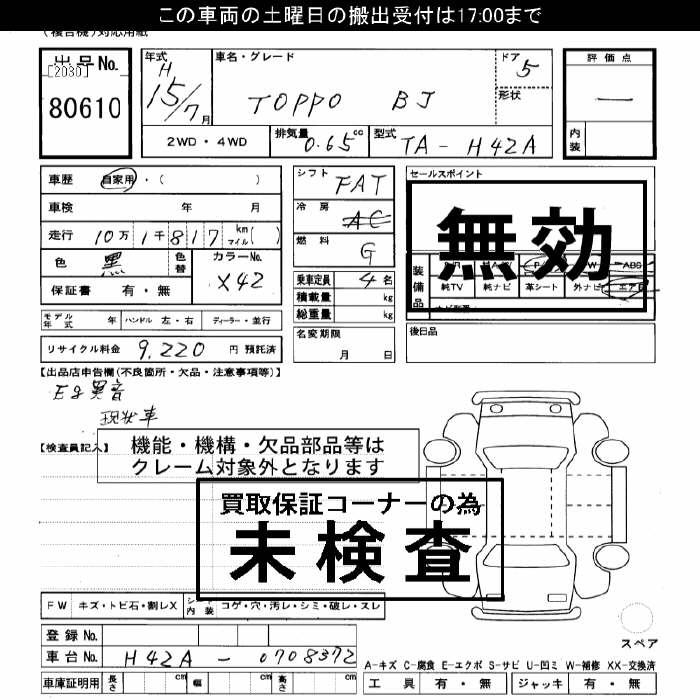 この車両の土曜日の搬出受付は17:00まで
(複合機)対応用紙
出品No.
[2030]
80610
年式
H
15/7月
車名・グレード
TOPPO BJ
ドア
5
形状
評価点
—
内装
2WD・4WD
排気量
0.65cc
型式
TA-H42A
車歴 自家用・( )
車検 年 月
走行 10万1千817km
マイル( )
色 黒
色替
カラーNo.
X42
保証書 有・無
シフト
FAT
冷房
AC
燃料
G
乗車定員 4名
積載量 kg
総重量 kg
セールスポイント
無効
装備品
ABS
純TV 純ナビ 革シート 外ナビ エアB
モデル年式 年 ハンドル 左・右 ディーラー・並行
名変期限
月 日
後日品
リサイクル料金 9,220 円 預託済
【出品店申告欄(不良箇所・欠品・注意事項等)】
Eg異音
現状車
【検査員記入】
機能・機構・欠品部品等は
クレーム対象外となります
買取保証コーナーの為
未検査
FW キズ・トビ石・割レX
シート内装 コゲ・穴・汚レ・シミ・破レ・スレ
登録No.
車台No. H42A-0708372
車庫証明用 長さ cm 幅 cm 高さ cm
スペア
A-キズ C-腐食 E-エクボ S-サビ U-凹ミ W-補修 XX-交換済
工具 有・無 ジャッキ 有・無